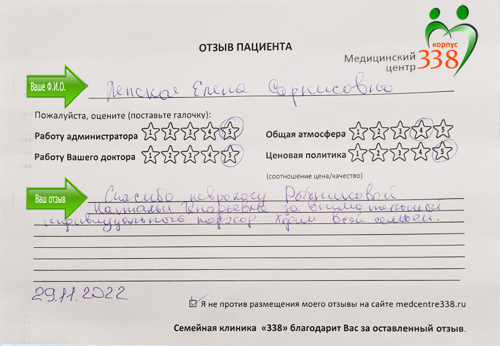 корпус
338
Медицинский центр
ОТЗЫВ ПАЦИЕНТА
Ваше Ф.И.О.
Ленская Елена Саркисовна
Пожалуйста, оцените (поставьте галочку):
Работу администратора 1 2 3 4 5
Общая атмосфера 1 2 3 4 5
Работу Вашего доктора 1 2 3 4 5
Ценовая политика 1 2 3 4 5
(соотношение цена/качество)
Ваш отзыв
Спасибо неврологу
Наталье за внимательный
индивидуальный подход. Ходим всей семьей.
29.11.2022
Я не против размещения моего отзывы на сайте medcentre338.ru
Семейная клиника «338» благодарит Вас за оставленный отзыв.